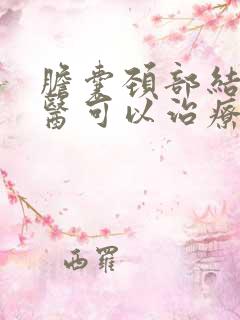 膽囊頸部結
醫可以治療
西羅